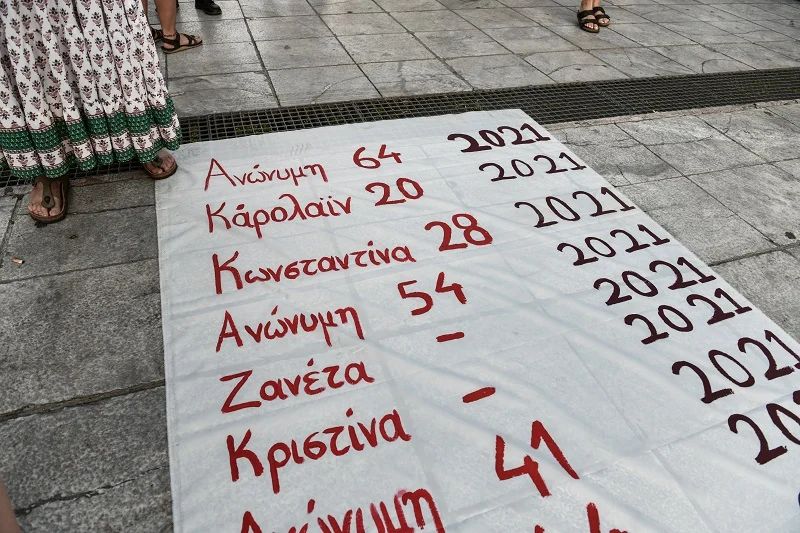 Ανώνυμη 64 2021
Κάρολαϊν 20 2021
Κωνσταντίνα 28 2021
Ανώνυμη 54 2021
Ζανέτα - 2021
Κριστίνα - 2021
Ανώνυμη 41 2021